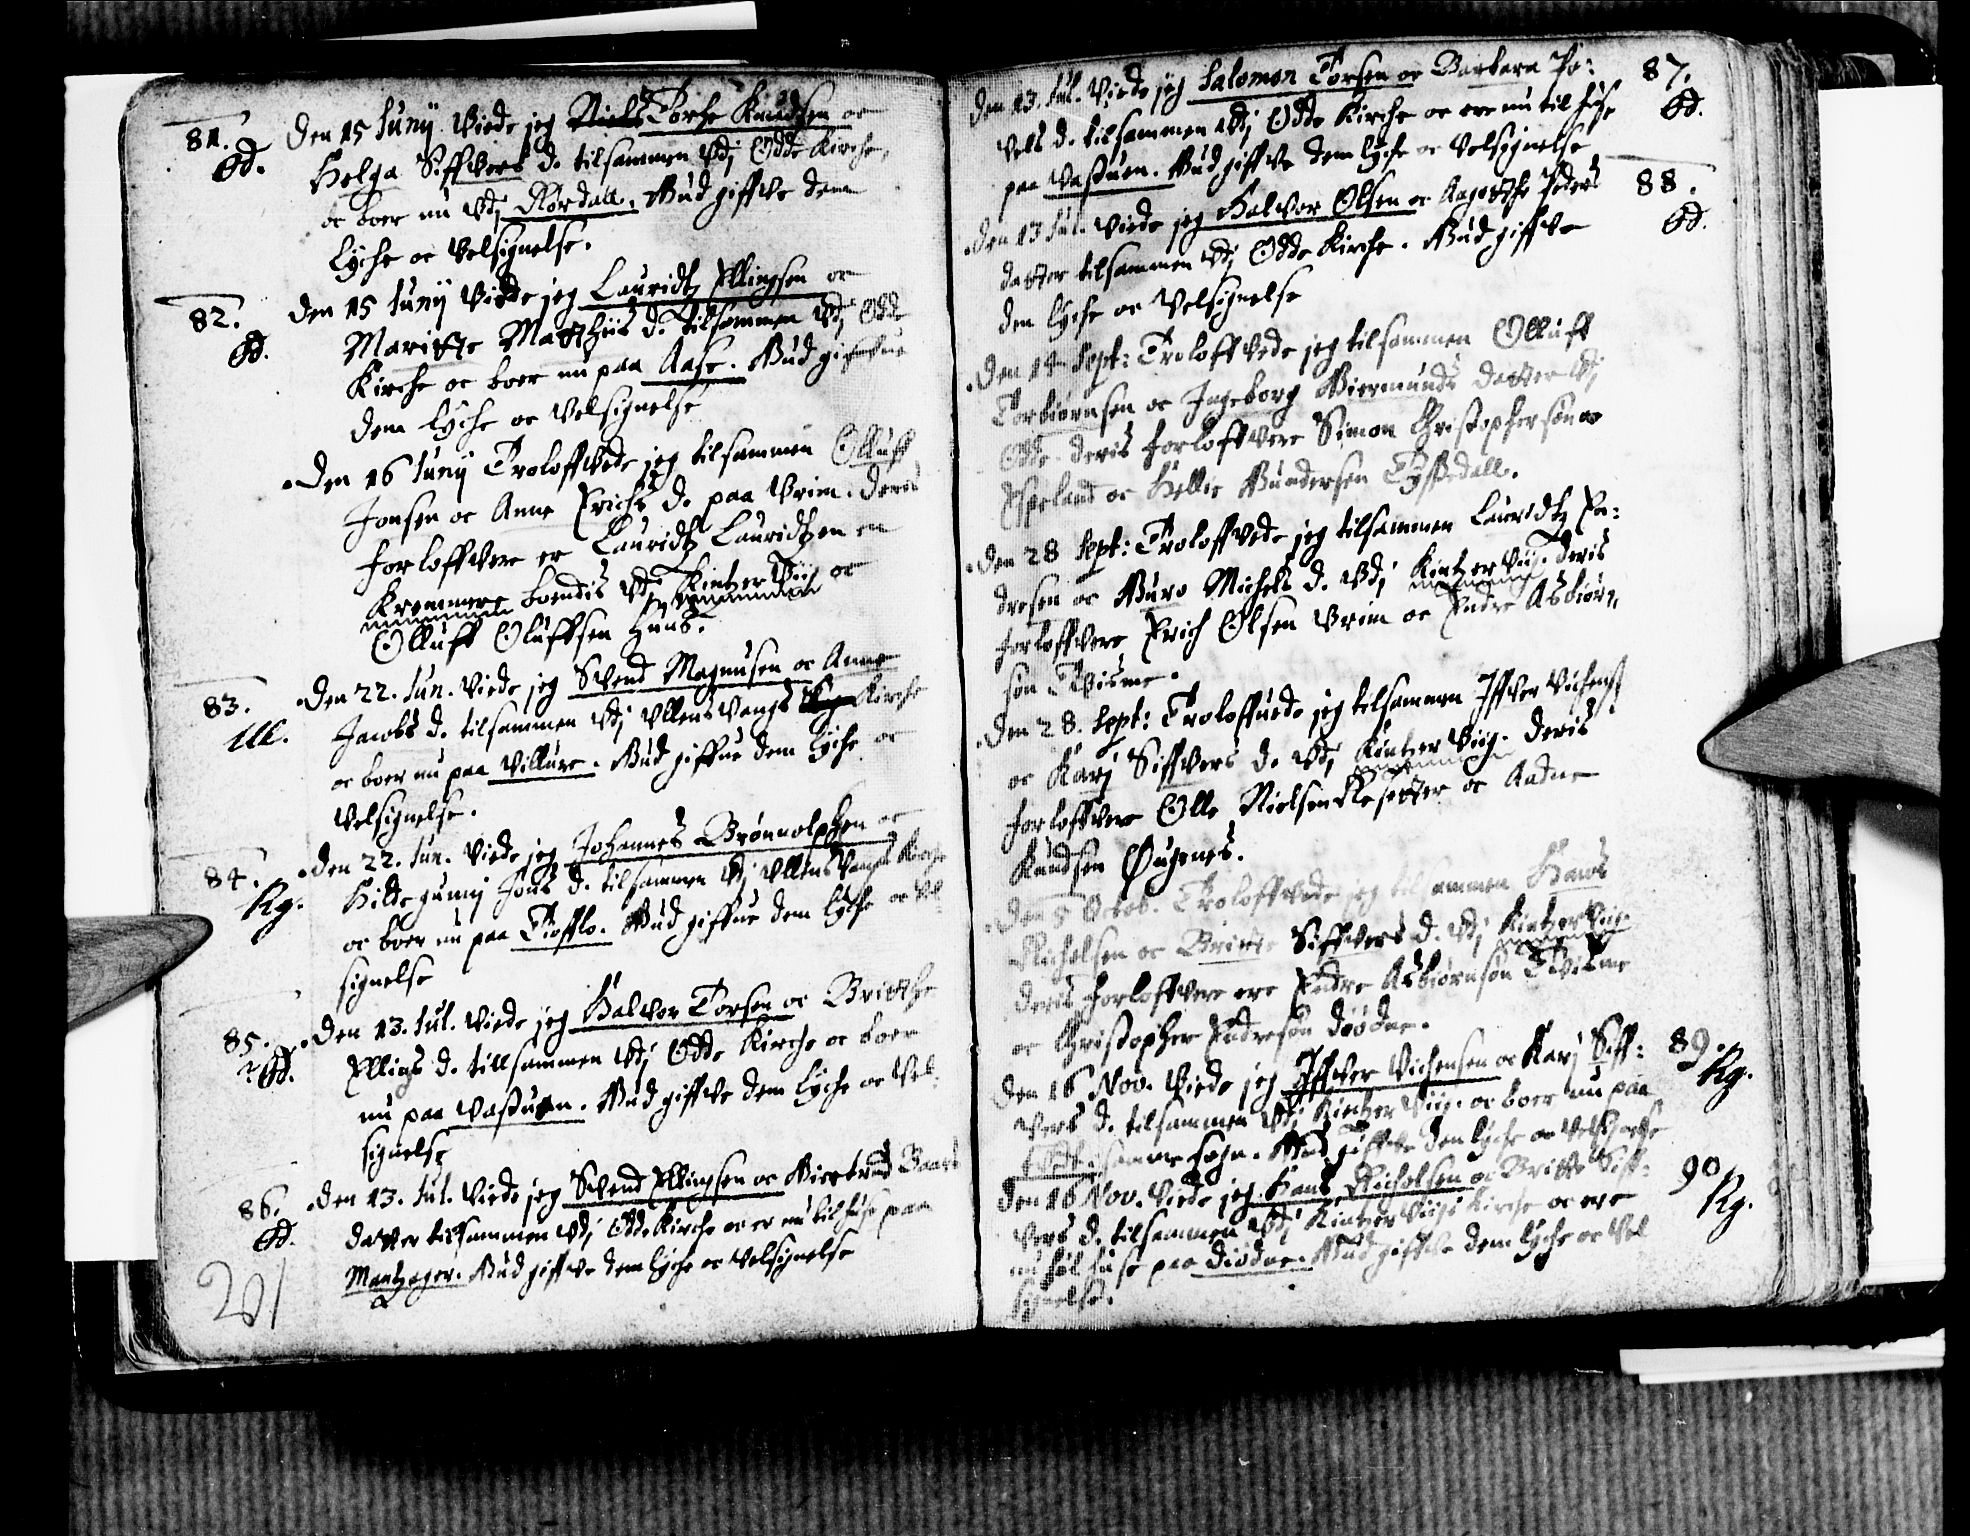 81. Den 15 Junij Viede jeg Niels Torke Knudsen oc
Od. Helga Siffvers d. tilsammen Vdj Odde Kirche,
oc boer nu Vdj Rørdall. Gud giffve dem
lyche oc Velsignelse.
82. Den 15 Junij Viede jeg Lauridtz Ellingsen oc
Od. Maritte Matthiis d. tilsammen Vdj Odde
Kirche oc boer nu paa Aase. Gud giffue
dem lyche oc Velsignelse
Den 16 Junij Troloffvede jeg tilsammen Olluff
Jonsen oc Anne Erichs d. paa Vrim. deris
forloffvere er Lauridtz Lauridtzen en
Kremmere boendis Vdj Kintzer Viig oc
Olluff Oluffsen Huus.
83. Den 22. Jun. Viede jeg Svend Magnusen oc Anne
Ull. Jacobs d. tilsammen Vdj Ullensvangs Kirche
oc boer nu paa Villure. Gud giffue dem lyche oc
Velsignelse.
84. Den 22. Jun. Viede jeg Johannes Brønnolphsen oc
Kg. Hildegunnj Jons d. tilsammen Vdj Ullensvangs Kirche
oc boer nu paa Tiofflo. Gud giffue dem lyche oc Vel-
signelse
85. Den 13. Jul. Viede jeg Halvor Torsen oc Britthe
Od. Ellings d. tillsammen Vdj Odde Kirche oc boer
nu paa Vastuen. Gud giffve dem lyche oc Vel-
signelse
86. Den 13. Jul. Viede jeg Svend Ellingsen oc Giertrud
Od. datter tilsammen Vdj Odde Kirche oc er nu til huse paa
Mantzager. Gud giffve dem lyche oc Velsignelse
201
Den 13. Jul. Viede jeg Salomon Torsen oc Barbara Po- 87.
vels d. tilsammen Vdj Odde Kirche oc ere nu til huse Od.
paa Vastuen. Gud giffve dem lyche oc Velsignelse
Den 13 Jul. Viede jeg Halvor Olsen oc Aagotthe Peders 88.
datter tilsammen Vdj Odde Kirche. Gud giffve Od.
dem lyche oc Velsignelse
Den 14 Sept: Troloffvede jeg tilsammen Olluff
Torbiørnsen oc Ingeborg Giermunds datter Vdj
Odde. deris forloffvere Simon Christophersøn
Espeland oc Hellie Gundersen Tyssedall.
Den 28 Sept: Troloffvede jeg tilsammen Lauridtz En-
dresen oc Guro Michels d. Vdj Kintzer Viig. deris
forloffvere Erich Olsen Vrim oc Endre Asbiørn-
søn Tvisme.
Den 28. Sept: Troloffuede jeg tilsammen Iffver Vichens.
oc Karj Siffvers d. Vdj Kintzer Viig. deris
forloffvere Olle Nielsen oc Aadne
Knudsen Øugenes.
Den 5 Octob. Troloffvede jeg tilsammen Hans
Richelsen oc Britte Siffvers d. Vdj Kintzer Viig
deris forloffvere ere Endre Asbiørnsøn Tvisme
oc Christopher Endresøn Diødne.
Den 16 Nov. Viede jeg Iffver Vichensen oc Karj Siff- 89.
vers d. tilsammen Vdj Kintzer Viig. oc boer nu paa Kg.
samme sogn. Gud giffve dem lyche oc Velsignelse
Den 16 Nov. Viede jeg Hans Richolsen oc Britte Siff- 90
vers d. tilsammen Vdj Kintzer Viigs Kirche oc ere Kg.
nu til huse paa Diødne. Gud giffve dem lyche oc Vel
signelse.